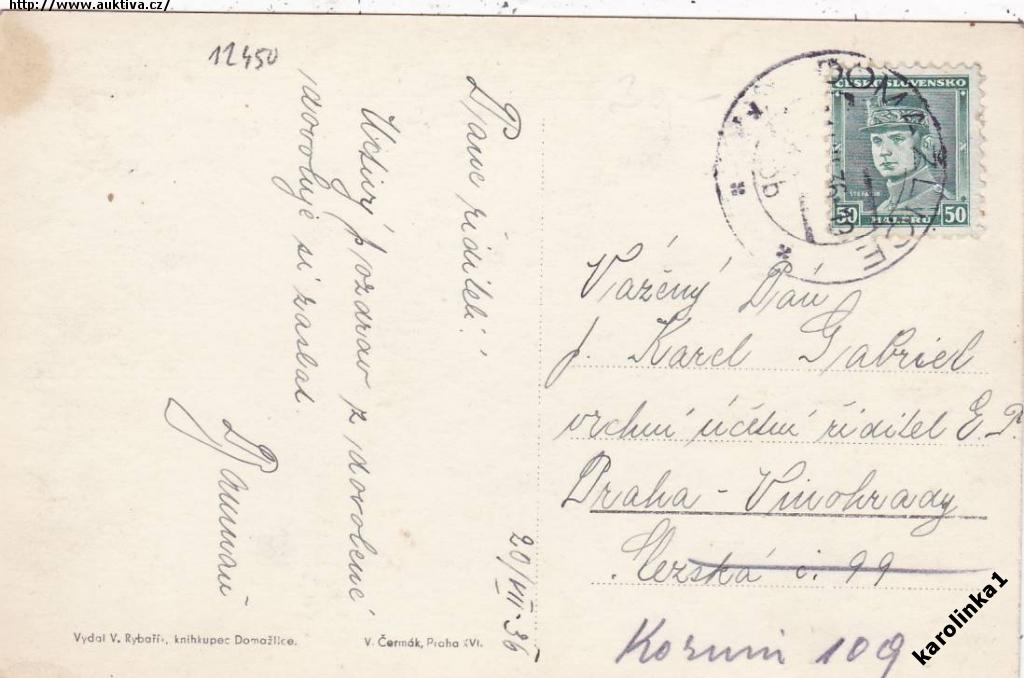 http://www.auktiva.cz/
12450
Pane řediteli!
Uctivý pozdrav z dovolené
dovoluji si zaslat.
20/VII-36
ČESKOSLOVENSKO
ŠTEFÁNIK
50 HALÉŘŮ 50
DOMAŽLICE
Vážený Pán
p. Karel Gabriel
vrchní účetní ředitel E. P.
Praha - Vinohrady
Slezská č. 99
Korunní 109
Vydal V. Rybář, knihkupec Domažlice.
V. Čermák, Praha XVI.
karolinka1